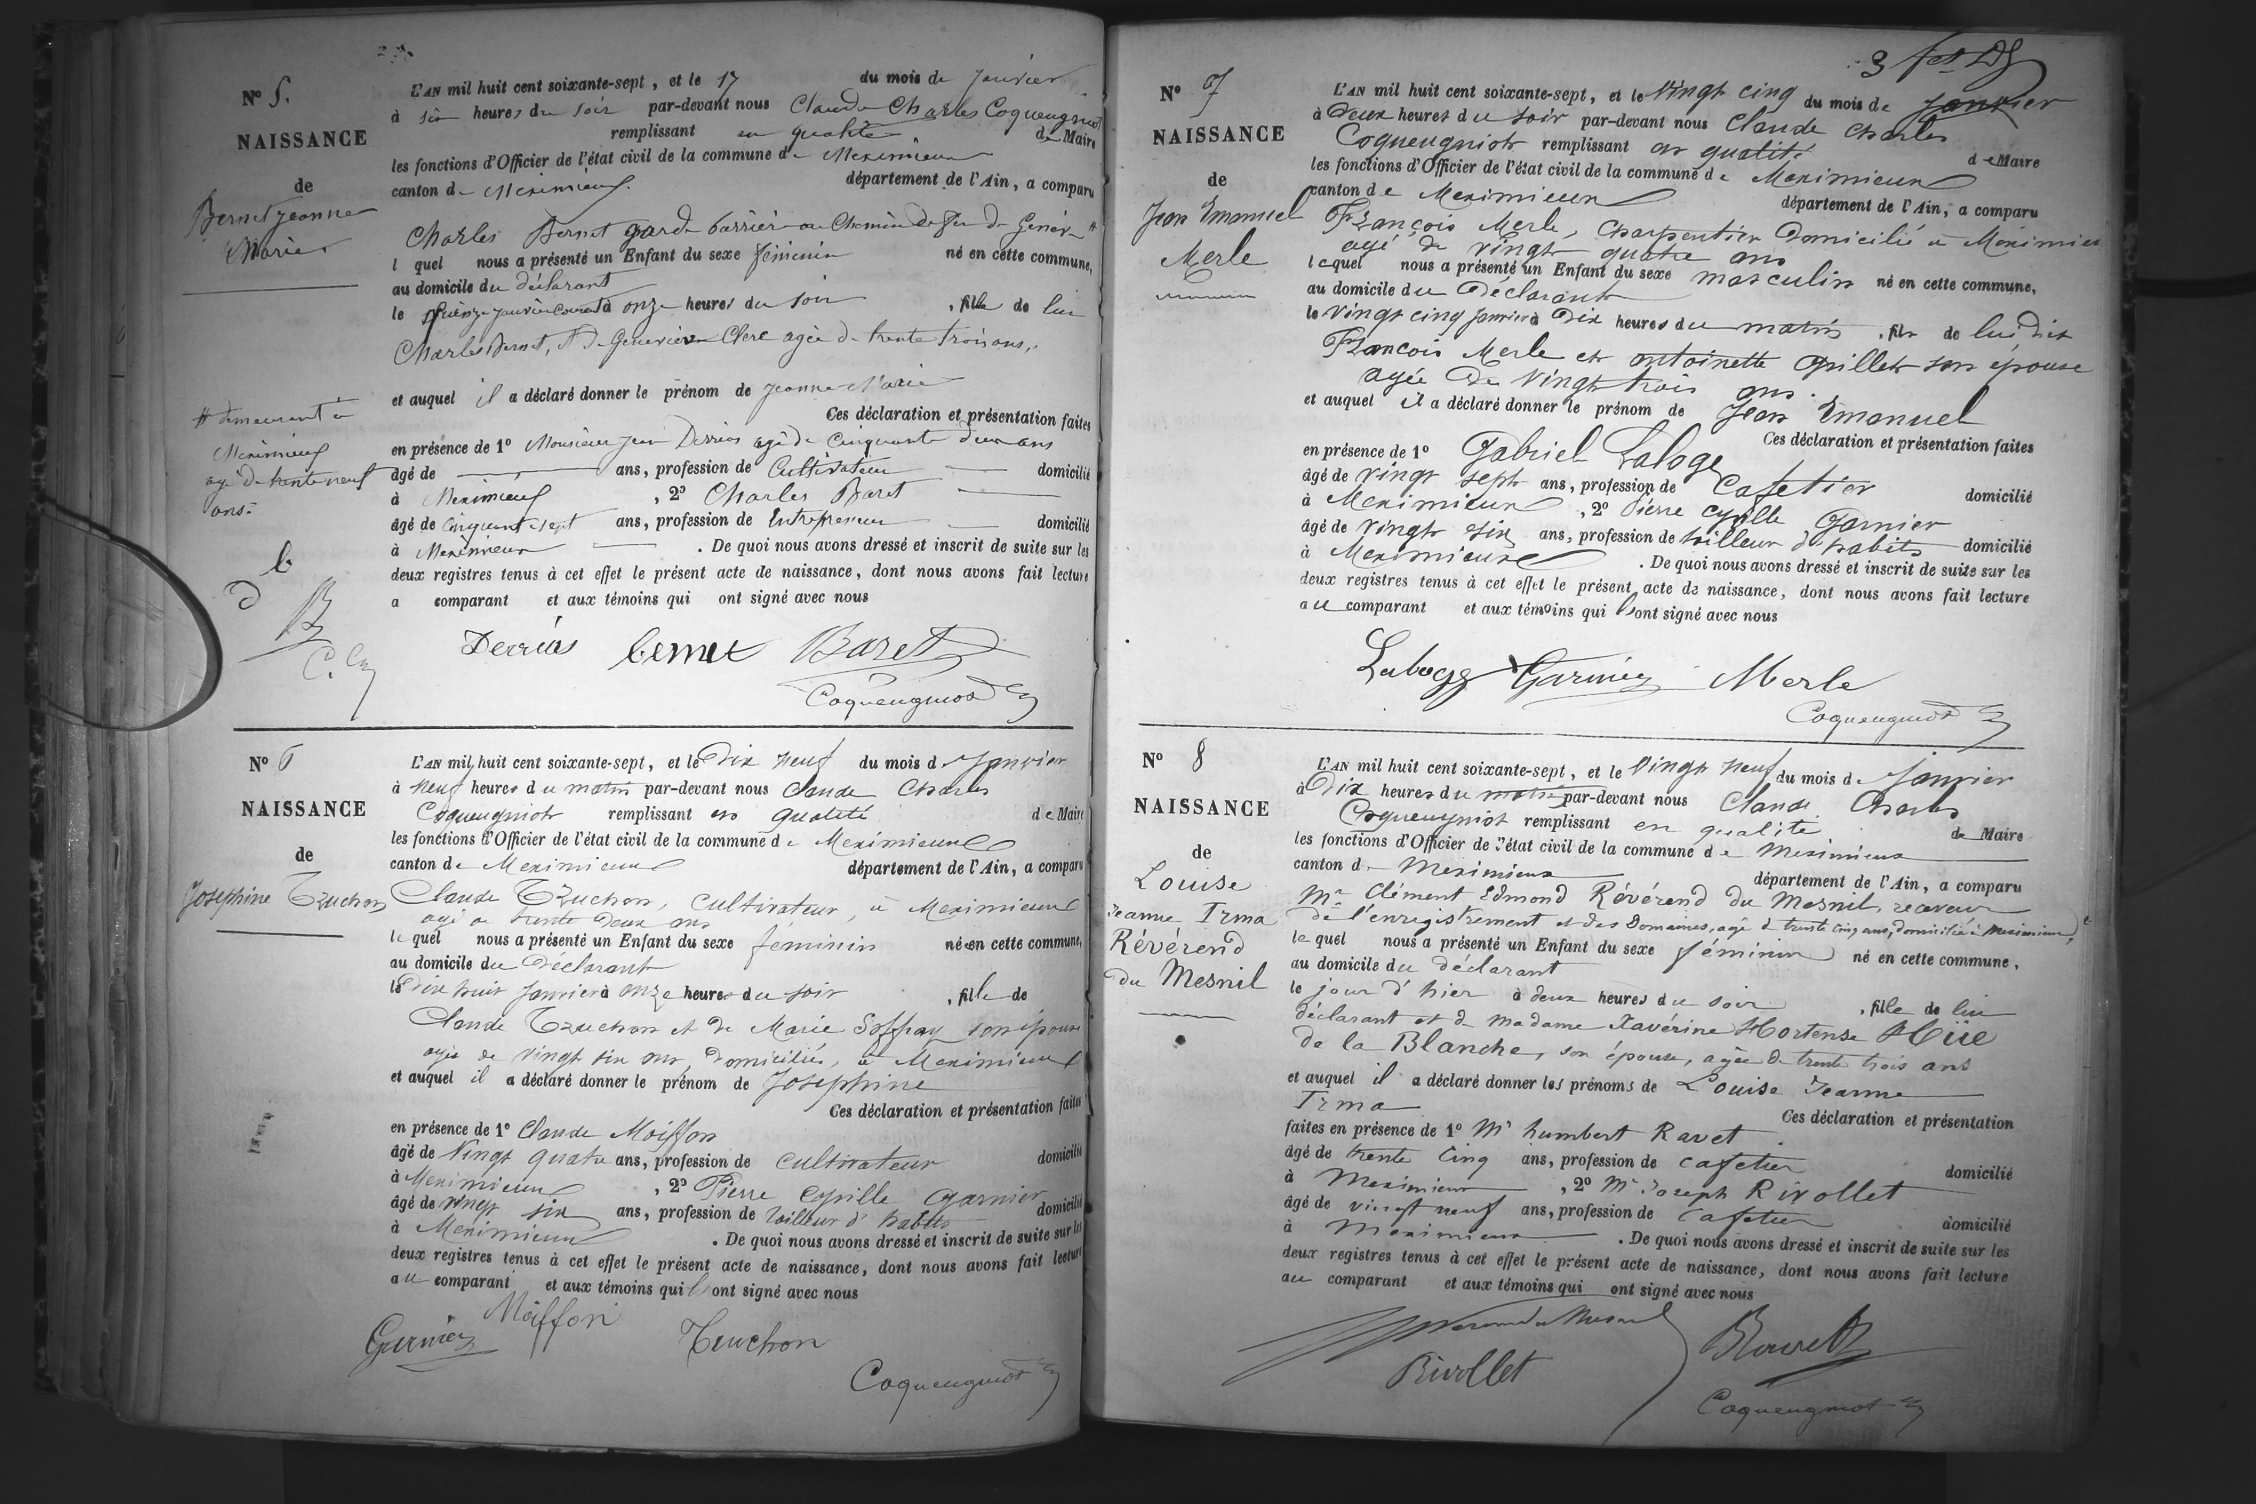 N° 5.
NAISSANCE
de
Bernet Jeanne
Marie
L'AN mil huit cent soixante-sept, et le 17 du mois de Janvier
à six heures du soir par-devant nous Claude Charles Coqueugniot
remplissant en qualité de Maire
les fonctions d'Officier de l'état civil de la commune de Meximieux
canton de Meximieux département de l'Ain, a comparu
Charles Bernet garde barrière au Chemin de fer de Genève #
l quel nous a présenté un Enfant du sexe féminin né en cette commune,
au domicile du déclarant
le quinze janvier courant à onze heures du soir, fille de lui
Charles Bernet, & de Geneviève Clerc agée de trente trois ans,
et auquel il a déclaré donner le prénom de Jeanne Marie
Ces déclaration et présentation faites
en présence de 1° Monsieur Jean Derrias agé de Cinquante deux ans
âgé de ans, profession de Cultivateur domicilié
à Meximieux, 2° Charles Baret
âgé de Cinquante sept ans, profession de Entrepreneur domicilié
à Meximieux. De quoi nous avons dressé et inscrit de suite sur les
deux registres tenus à cet effet le présent acte de naissance, dont nous avons fait lecture
a comparant et aux témoins qui ont signé avec nous
# demeurant à
Meximieux
agé de trente neuf
ans.
b
D
B
C. Cq
Derrias bernet Baret
Coqueugniot
N° 6
NAISSANCE
de
Josephine Truchon
L'AN mil huit cent soixante-sept, et le Dix neuf du mois d Janvier
à neuf heures du matin par-devant nous Claude Charles
Coqueugniot remplissant en qualité de Maire
les fonctions d'Officier de l'état civil de la commune de Meximieux
canton de Meximieux département de l'Ain, a comparu
Claude Truchon, cultivateur, à Meximieux
agé de trente Deux ans
le quel nous a présenté un Enfant du sexe féminin né en cette commune,
au domicile du Déclarant
le Dix huit Janvier à onze heures du soir, fille de
Claude Truchon et de Marie Soffray son épouse
agée de vingt six ans, domiciliés, à Meximieux
et auquel il a déclaré donner le prénom de Josephine
Ces déclaration et présentation faites
en présence de 1° Claude Moiffon
âgé de Vingt quatre ans, profession de cultivateur domicilié
à Meximieux, 2° Pierre Cyrille Garnier
âgé de vingt six ans, profession de tailleur d'habits domicilié
à Meximieux. De quoi nous avons dressé et inscrit de suite sur les
deux registres tenus à cet effet le présent acte de naissance, dont nous avons fait lecture
au comparant et aux témoins qui ont signé avec nous
Moiffon
Garnier Truchon
Coqueugniot
3
N° 7
NAISSANCE
de
Jean Emanuel
Merle
L'AN mil huit cent soixante-sept, et le Vingt cinq du mois de Janvier
à Deux heures du soir par-devant nous Claude Charles
Coqueugniot remplissant en qualité de Maire
les fonctions d'Officier de l'état civil de la commune de Meximieux
canton de Meximieux département de l'Ain, a comparu
François Merle, charpentier Domicilié à Meximieux
agé de vingt quatre ans
lequel nous a présenté un Enfant du sexe masculin né en cette commune,
au domicile du Déclarant
le Vingt cinq janvier à Dix heures du matin, fils de lui dit
François Merle et antoinette Grillet son epouse
agée De Vingt trois ans.
et auquel il a déclaré donner le prénom de Jean Emanuel
Ces déclaration et présentation faites
en présence de 1° Gabriel Laloge
âgé de vingt sept ans, profession de cafetier domicilié
à Meximieux, 2° Pierre Cyrille Garnier
âgé de Vingt six ans, profession de tailleur d'habits domicilié
à Meximieux. De quoi nous avons dressé et inscrit de suite sur les
deux registres tenus à cet effet le présent acte de naissance, dont nous avons fait lecture
au comparant et aux témoins qui ont signé avec nous
Garnier Merle
Coqueugniot
N° 8
NAISSANCE
de
Louise
Jeanne Irma
Révérend
du Mesnil
L'AN mil huit cent soixante-sept, et le Vingt neuf du mois de Janvier
à Dix heures du matin par-devant nous Claude Charles
Coqueugniot remplissant en qualité de Maire
les fonctions d'Officier de l'état civil de la commune de Meximieux
canton de Meximieux département de l'Ain, a comparu
Mr Clément Edmond Révérend du Mesnil, receveur
de l'enregistrement et des Domaines, agé de trente cinq ans, domicilié à Meximieux,
le quel nous a présenté un Enfant du sexe féminin né en cette commune,
au domicile du déclarant
le jour d'hier à deux heures du soir, fille de lui
déclarant et de madame Xavérine Hortense Hüe
de la Blanche, son épouse, agée de trente trois ans
et auquel il a déclaré donner les prénoms de Louise Jeanne
Irma Ces déclaration et présentation
faites en présence de 1° Mr humbert Ravet
âgé de trente cinq ans, profession de cafetier domicilié
à Meximieux, 2° Mr Joseph Rivollet
âgé de vingt neuf ans, profession de cafetier domicilié
à Meximieux. De quoi nous avons dressé et inscrit de suite sur les
deux registres tenus à cet effet le présent acte de naissance, dont nous avons fait lecture
au comparant et aux témoins qui ont signé avec nous
Rivollet
Coqueugniot